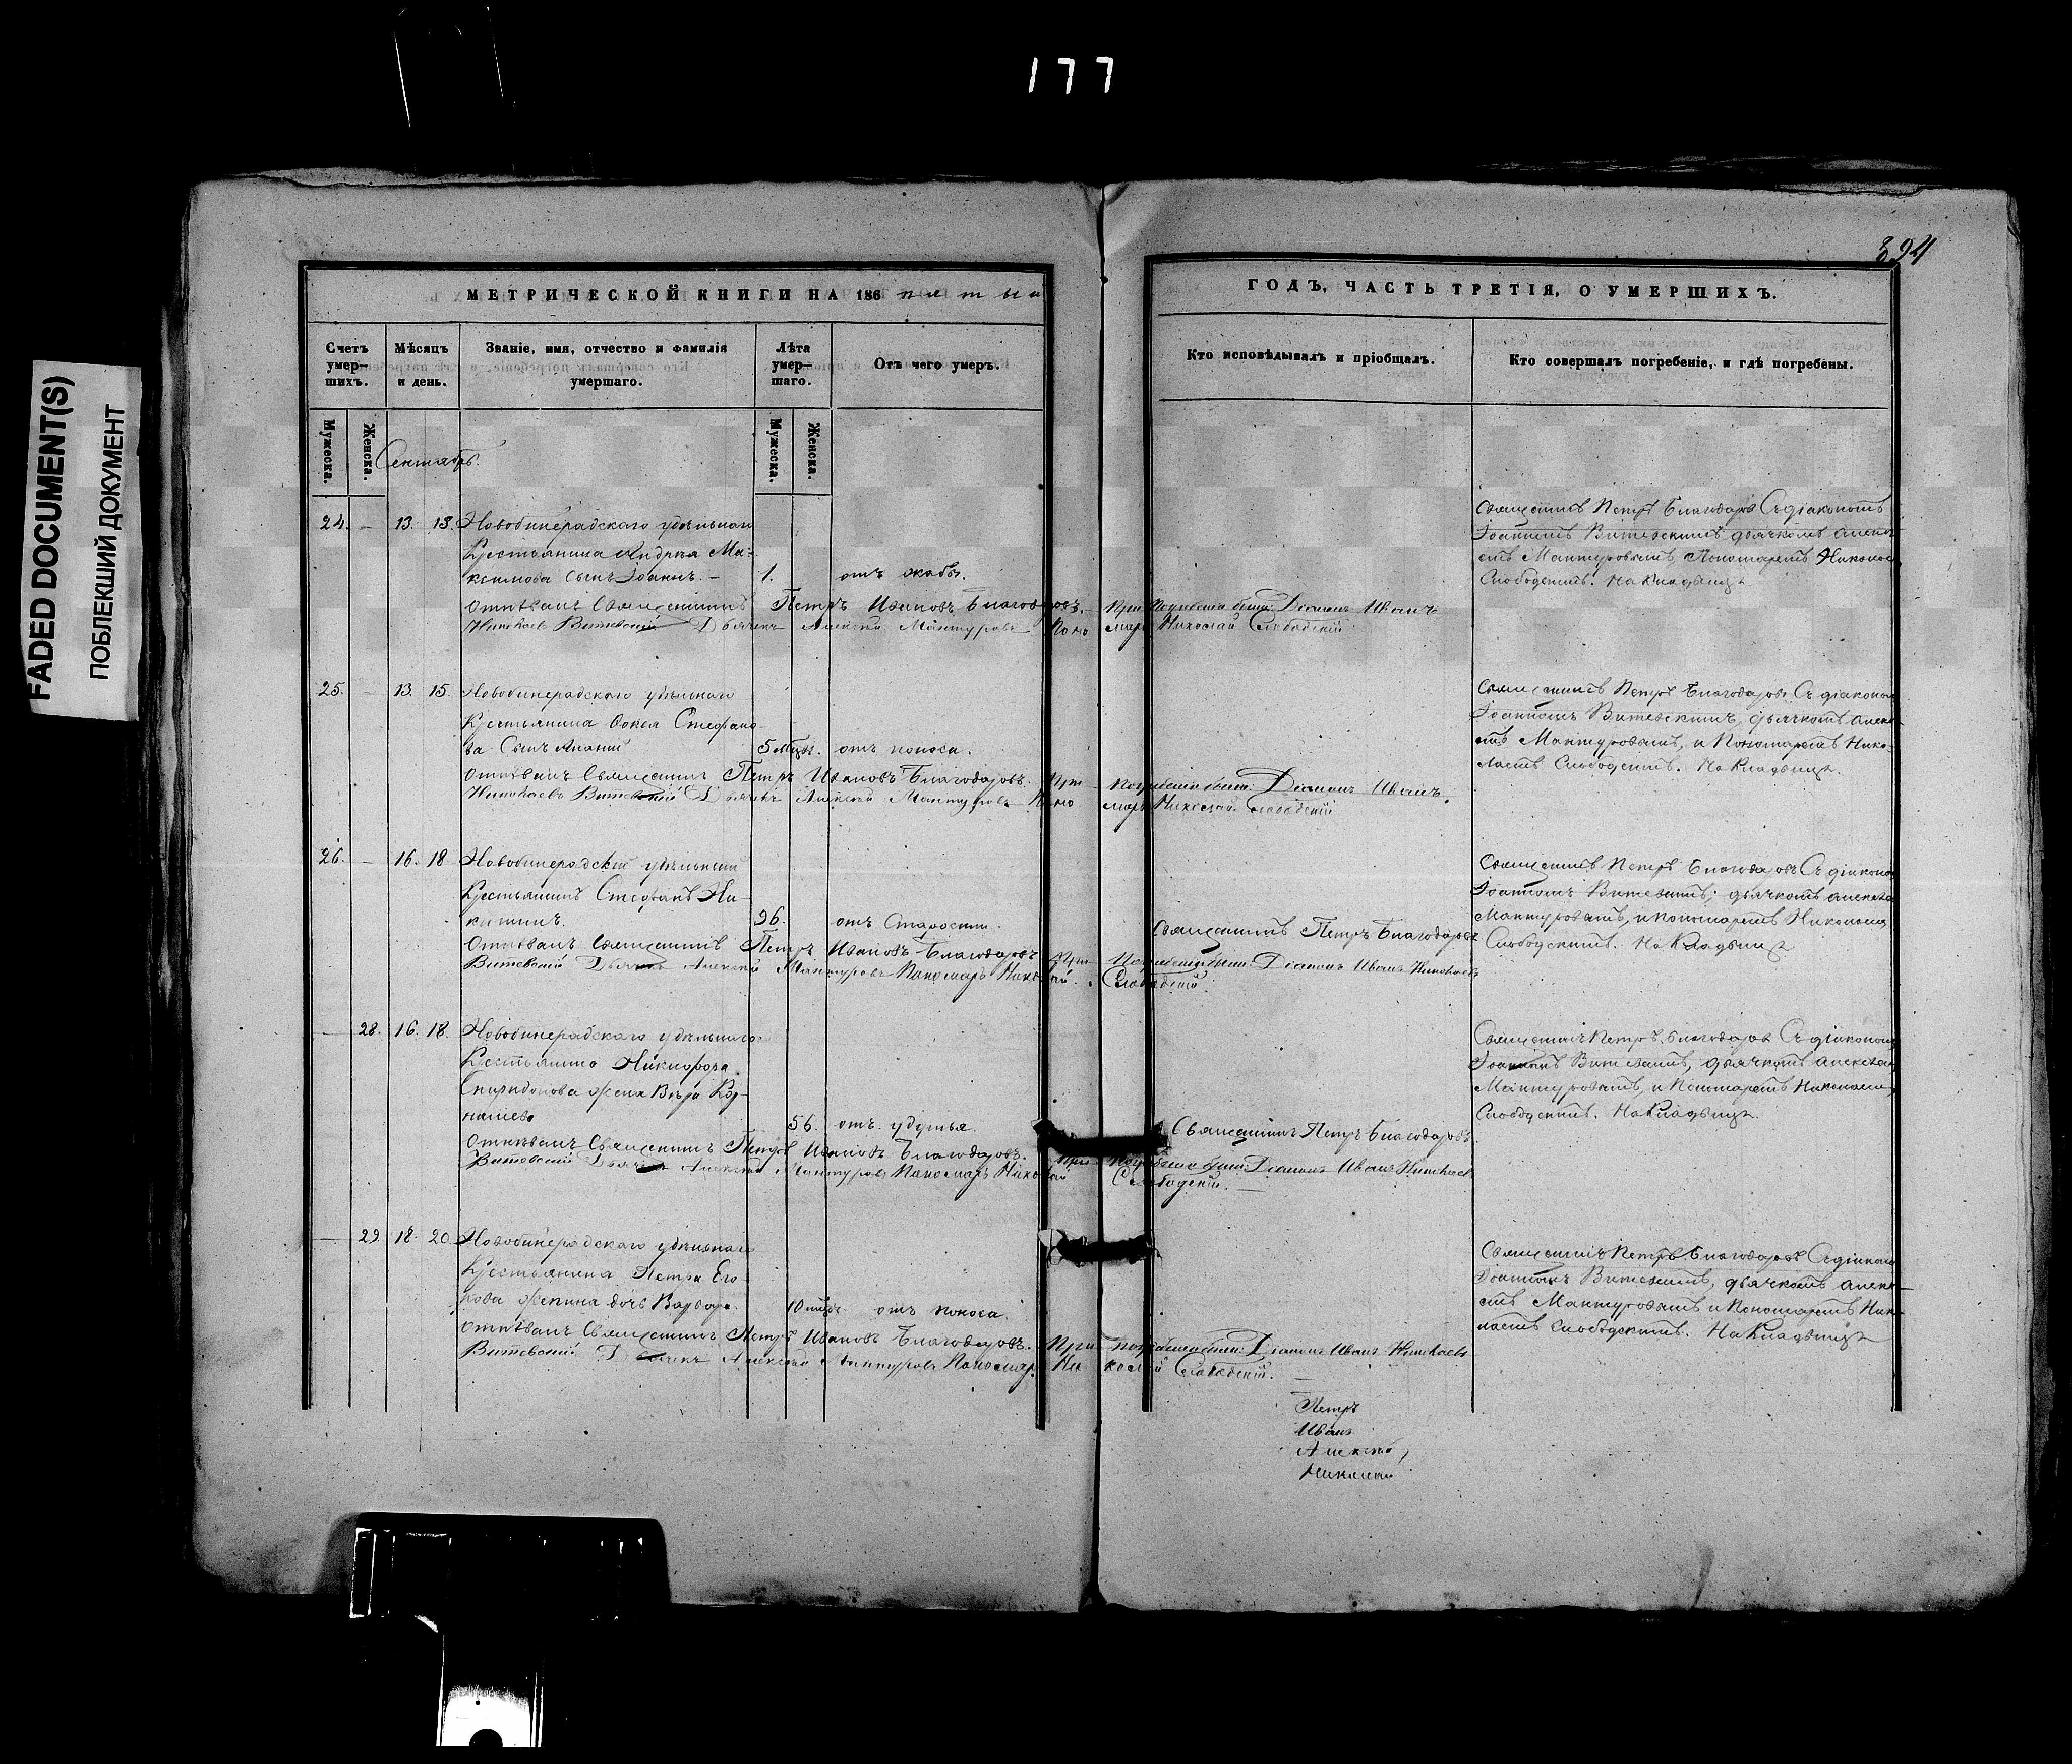 177
FADED DOCUMENT(S)
ПОБЛЕКШИЙ ДОКУМЕНТ
394
МЕТРИЧЕСКОЙ КНИГИ НА 186 пятый
ГОДЪ, ЧАСТЬ ТРЕТІЯ, О УМЕРШИХЪ.
Счетъ умер-шихъ.
Мѣсяцъ и день.
Званіе, имя, отчество и фамилія умершаго.
Лѣта умер-шаго.
Отъ чего умеръ.
Кто исповѣдывалъ и пріобщалъ.
Кто совершалъ погребеніе, и гдѣ погребены.
Мужеска.
Женска.
Мужеска.
Женска.
Сентябрь.
24. – 13. 13. Новобинарадскаго удѣльнаго
Крестьянина Андрея Ма-
ксимова сынъ Іоаннъ. – 1. отъ жабы.
Священникъ Петръ Благодаровъ Съ діакономъ
Іоанномъ Витевскимъ дьячкомъ Алексѣ-
емъ Мантуровымъ, Пономаремъ Николаемъ
Слободскимъ. На кладбищѣ
Отпѣвалъ Священникъ Петръ Ивановъ Благодаровъ. При погребеніи были: Діаконъ Иванъ
Николаевъ Витевскій Дьячекъ Алексѣй Мантуровъ Пономарь Николай Слободскій
25. – 13. 15. Новобинарадскаго удѣльнаго
Крестьянина Стефано-
ва Сынъ Ананій 5 мѣсяц. отъ поноса.
Священникъ Петръ Благодаровъ Съ діакономъ
Іоанномъ Витевскимъ, дьячкомъ Алексѣ-
емъ Мантуровымъ, и Пономаремъ Нико-
лаемъ Слободскимъ. На кладбищѣ.
Отпѣвалъ Священникъ Петръ Ивановъ Благодаровъ. При погребеніи были: Діаконъ Иванъ
Николаевъ Витевскій Дьячекъ Алексѣй Мантуровъ Пономарь Николай Слободскій
26. – 16. 18. Новобинарадскій удѣльный
Крестьянинъ Стефанъ Ни-
китинъ. 96. отъ Старости.
Священникъ Петръ Благодаровъ
Священникъ Петръ Благодаровъ Съ діакономъ
Іоанномъ Витевскимъ, дьячкомъ Алексѣемъ
Мантуровымъ, и Пономаремъ Николаемъ
Слободскимъ. На Кладбищѣ
Отпѣвалъ Священникъ Петръ Ивановъ Благодаровъ При погребеніи были: Діаконъ Иванъ Николаевъ
Витевскій Дьячекъ Алексѣй Мантуровъ Пономарь Николай Слободскій
– 28. 16. 18. Новобинарадскаго удѣльнаго
Крестьянина Никифора
Спиридонова жена Вѣра Кор-
нилиева 56. отъ удушья.
Священникъ Петръ Благодаровъ
Священникъ Петръ Благодаровъ Съ діакономъ
Іоанномъ Витевскимъ, дьячкомъ Алексѣемъ
Мантуровымъ, и Пономаремъ Николаемъ
Слободскимъ. На Кладбищѣ.
Отпѣвалъ Священникъ Петръ Ивановъ Благодаровъ. При погребеніи были: Діаконъ Иванъ Николаевъ
Витевскій Дьячекъ Алексѣй Мантуровъ Пономарь Николай Слободскій. –
– 29. 18. 20. Новобинарадскаго удѣльнаго
Крестьянина Петра Его-
рова дочь Варвара. 10 отъ поноса.
Священникъ Петръ Благодаровъ Съ діакономъ
Іоанномъ Витевскимъ, дьячкомъ Алексѣ-
емъ Мантуровымъ и Пономаремъ Нико-
лаемъ Слободскимъ. На Кладбищѣ
Отпѣвалъ Священникъ Петръ Ивановъ Благодаровъ. При погребеніи были: Діаконъ Иванъ Николаевъ
Витевскій Дьячекъ Алексѣй Мантуровъ Пономарь Николай Слободскій.
Петръ
Иванъ
Алексѣй,
Николай